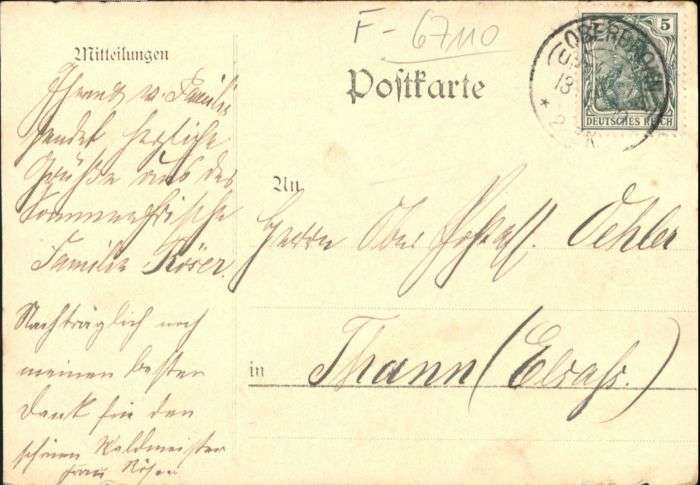 F-67110
Mitteilungen
Postkarte
5
OBERBRONN
DEUTSCHES REICH
Ihnen u. Familie
sendet herzliche
Grüße aus der
Sommerfrische
Familie Röser.
Nachträglich noch
meinen besten
Dank für den
schönen Waldmeister
Frau Röser
An
Herrn Ober Oehler
in Thann (Elsass.)